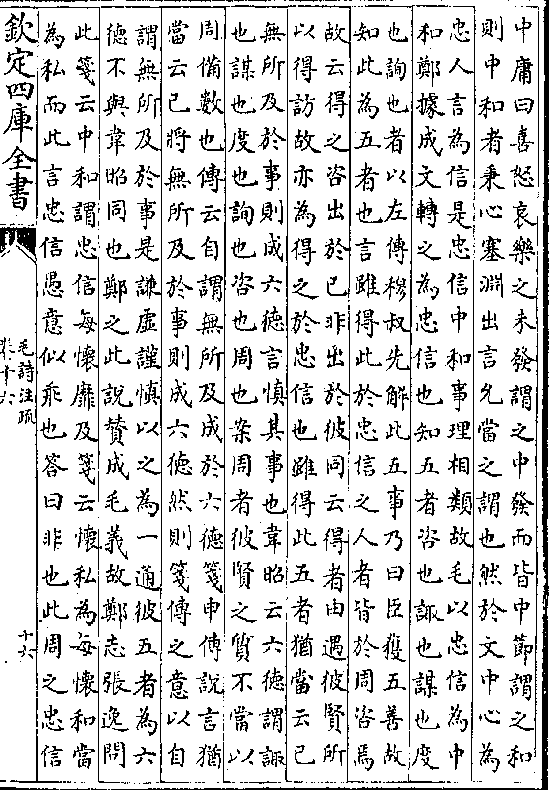 中庸曰喜怒哀樂之未發謂之中發而皆中節謂之和
則中和者秉心塞淵出言允當之謂也然於文中心為
忠人言為信是忠信中和事理相類故毛以忠信為中
和鄭據成文轉之為忠信也知五者咨也諏也謀也度
也詢也者以左傳穆叔先解此五事乃曰臣獲五善故
知此為五者也言雖得此於忠信之人者皆於周咨焉
故云得之咨出於己非出於彼同云得者由遇彼賢所
以得訪故亦為得之於忠信也雖得此五者猶當云已
無所及於事則成六德言慎其事也韋昭云六德謂諏
也謀也度也詢也咨也周也案周者彼賢之質不當以
周備數也傳云自謂無所及成於六德箋申傳說言猶
當云已將無所及於事則成六德然則箋傳之意以自
謂無所及於事是謙虛謹慎以之為一通彼五者為六
德不與韋昭同也鄭之此說贊成毛義故鄭志張逸問
此箋云中和謂忠信每懷靡及箋云懷私為每懷和當
為私而此言忠信愚意似乖也答曰非也此周之忠信
欽定四庫全書
毛詩注疏
卷十六
十六